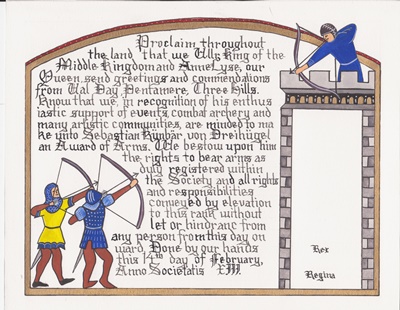 Proclaim throughout
the land that we Ullr King of the
Middle Kingdom and AnneLyse, our
Queen, send greetings and commendations
from Val Day, Pentamere, Three Hills.
Know that we, in recognition of his enthus
iastic support of events, combat archery and
many artistic communities, are minded to ma
ke unto Sebastian Kunbar, von Dreihügel
an Award of Arms. We bestow upon him
the rights to bear arms as
duly registered within
the Society and all rights
and responsibilities
conveyed by elevation
to this rank without
let or hindranc from
any person from this day on
ward. Done by our hands
this 14th day of February,
Anno Societatis XIII.
Rex
Regina